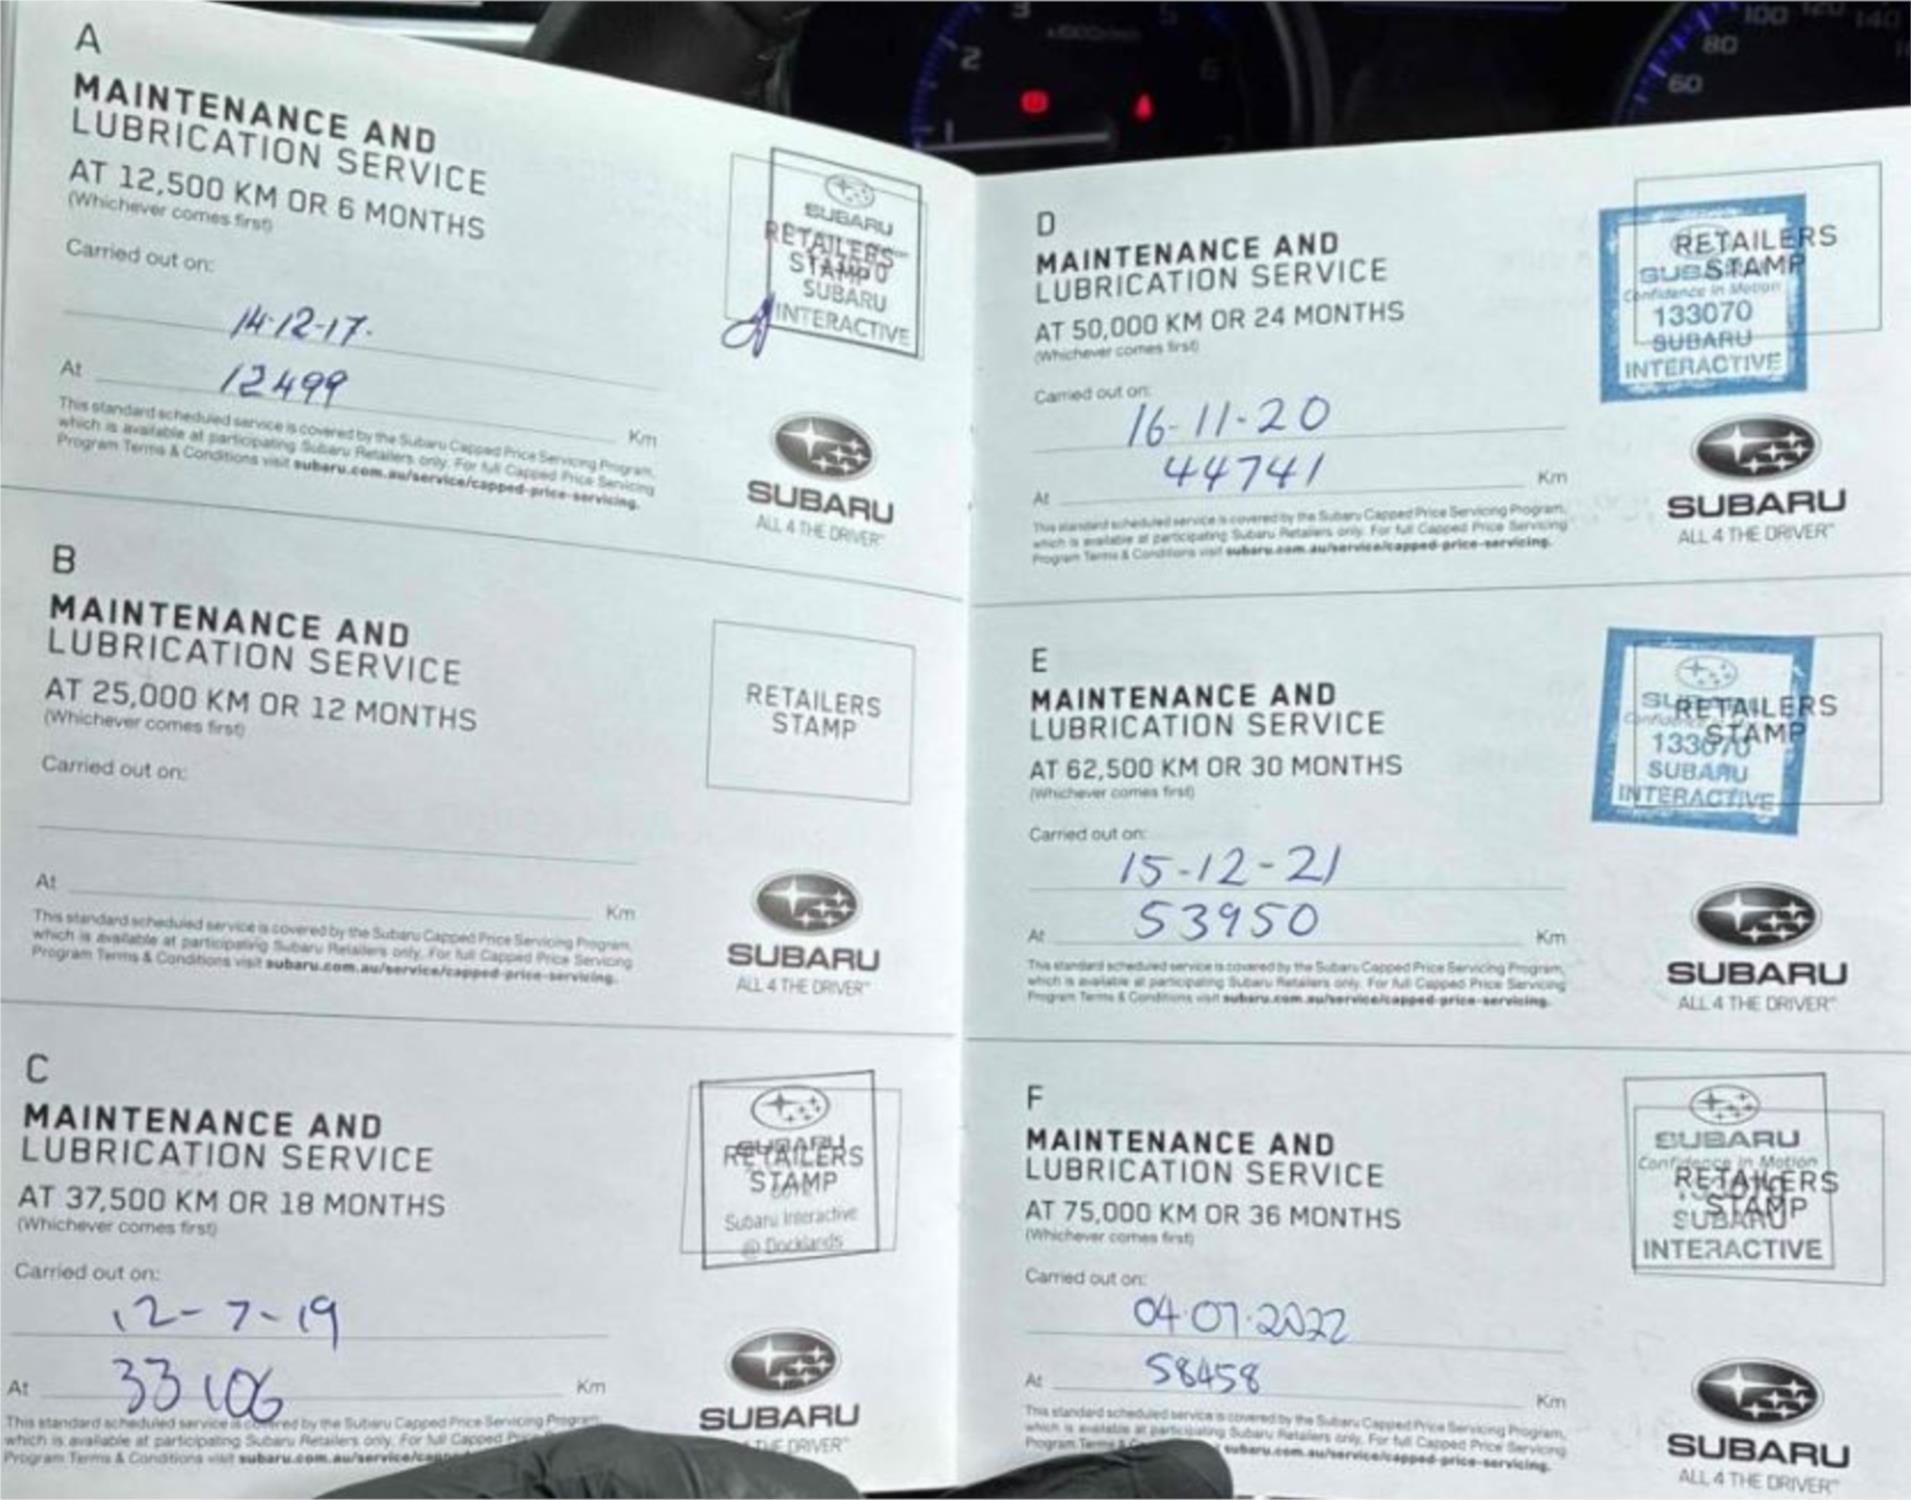 A
MAINTENANCE AND
LUBRICATION SERVICE
AT 12,500 KM OR 6 MONTHS
(Whichever comes first)
Carried out on:
14-12-17.
At 12499 Km
This standard scheduled service is covered by the Subaru Capped Price Servicing Program,
which is available at participating Subaru Retailers only. For full Capped Price Servicing
Program Terms & Conditions visit subaru.com.au/service/capped-price-servicing.
SUBARU
RETAILERS
STAMP
SUBARU
INTERACTIVE
SUBARU
ALL 4 THE DRIVER™
B
MAINTENANCE AND
LUBRICATION SERVICE
AT 25,000 KM OR 12 MONTHS
(Whichever comes first)
Carried out on:
At Km
This standard scheduled service is covered by the Subaru Capped Price Servicing Program,
which is available at participating Subaru Retailers only. For full Capped Price Servicing
Program Terms & Conditions visit subaru.com.au/service/capped-price-servicing.
RETAILERS
STAMP
SUBARU
ALL 4 THE DRIVER™
C
MAINTENANCE AND
LUBRICATION SERVICE
AT 37,500 KM OR 18 MONTHS
(Whichever comes first)
Carried out on:
12-7-19
At 33106 Km
This standard scheduled service is covered by the Subaru Capped Price Servicing Program,
which is available at participating Subaru Retailers only. For full Capped
Program Terms & Conditions visit
SUBARU
RETAILERS
STAMP
Subaru Interactive
@ Docklands
SUBARU
THE DRIVER™
D
MAINTENANCE AND
LUBRICATION SERVICE
AT 50,000 KM OR 24 MONTHS
(Whichever comes first)
Carried out on:
16-11-20
At 44741 Km
This standard scheduled service is covered by the Subaru Capped Price Servicing Program,
which is available at participating Subaru Retailers only. For full Capped Price Servicing
Program Terms & Conditions visit subaru.com.au/service/capped-price-servicing.
RETAILERS
STAMP
Confidence in Motion
133070
SUBARU
INTERACTIVE
SUBARU
ALL 4 THE DRIVER™
E
MAINTENANCE AND
LUBRICATION SERVICE
AT 62,500 KM OR 30 MONTHS
(Whichever comes first)
Carried out on:
15-12-21
At 53950 Km
This standard scheduled service is covered by the Subaru Capped Price Servicing Program,
which is available at participating Subaru Retailers only. For full Capped Price Servicing
Program Terms & Conditions visit subaru.com.au/service/capped-price-servicing.
RETAILERS
STAMP
133070
SUBARU
INTERACTIVE
SUBARU
ALL 4 THE DRIVER™
F
MAINTENANCE AND
LUBRICATION SERVICE
AT 75,000 KM OR 36 MONTHS
(Whichever comes first)
Carried out on:
04.07.2022
At 58458 Km
This standard scheduled service is covered by the Subaru Capped Price Servicing Program,
which is available at participating Subaru Retailers only. For full Capped Price Servicing
Program Terms subaru.com.au/service/capped-price-servicing.
SUBARU
Confidence in Motion
RETAILERS
STAMP
SUBARU
INTERACTIVE
SUBARU
ALL 4 THE DRIVER™
1
2
3
60
80
100
120
140